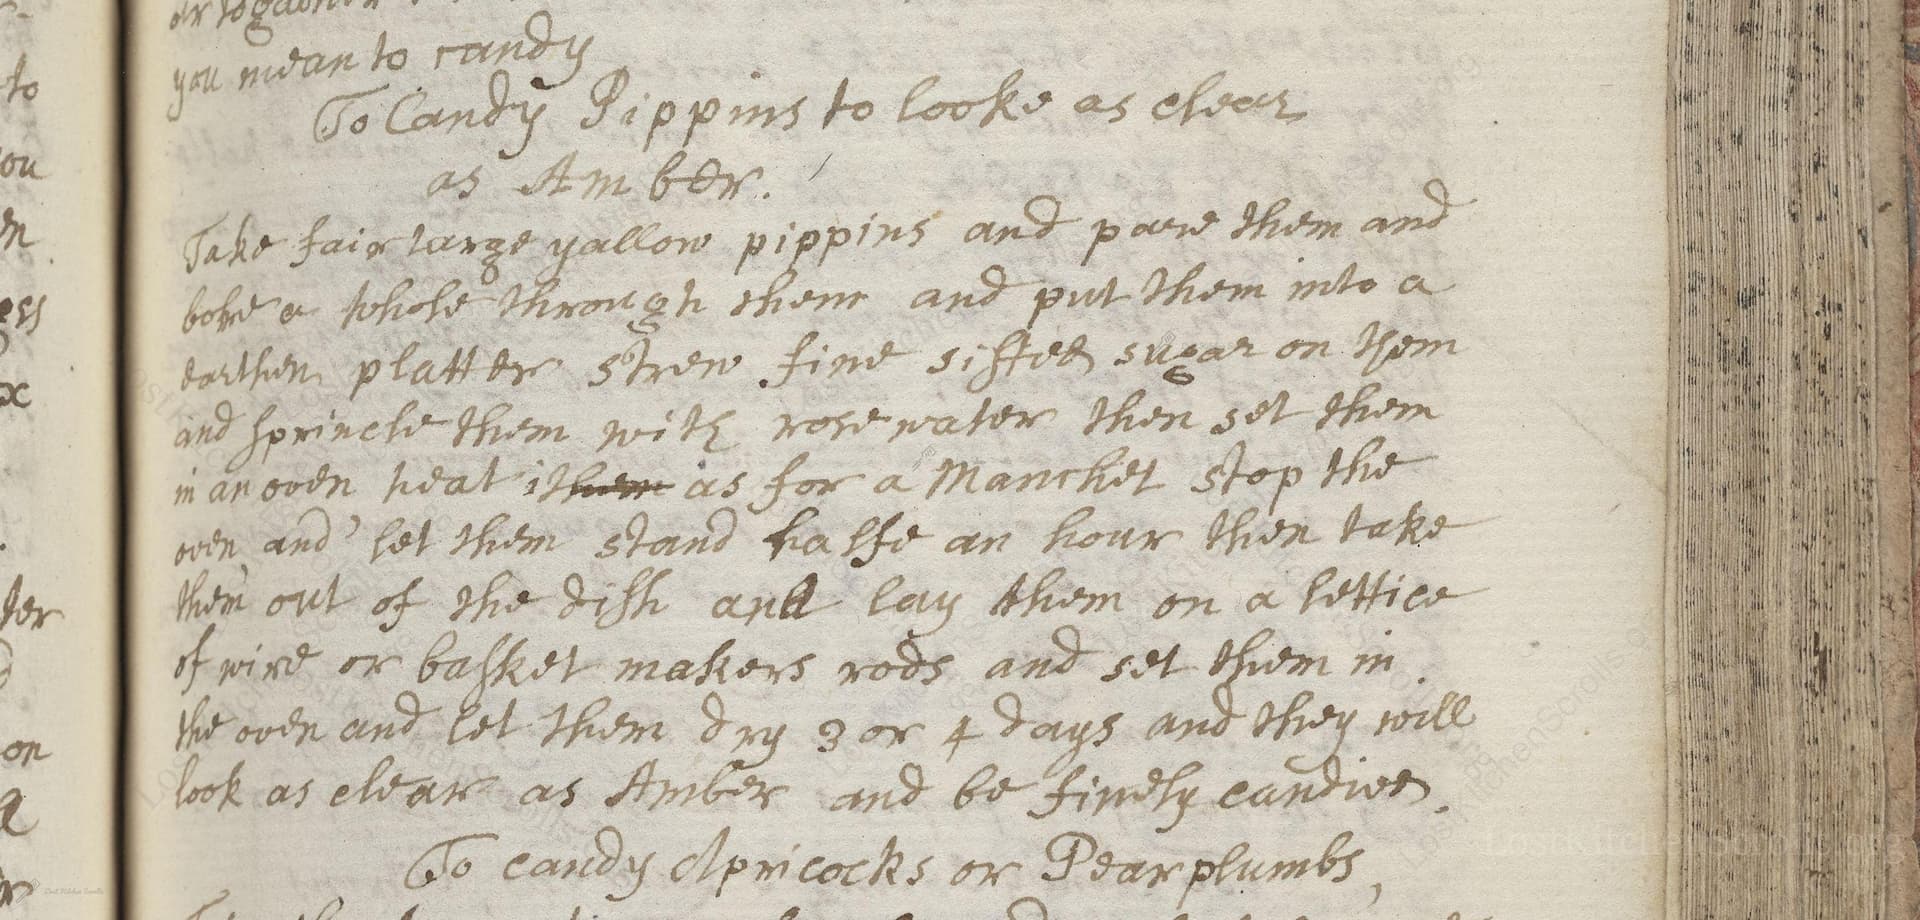 you mean to candy
To Candy Pippins to looke as clear
as Amber.
Take fair large yallow pippins and pare them and
bore a whole through them and put them into a
earthen platter strew fine sifted sugar on them
and sprincle them with rose water then set them
in an oven heat as for a Manchet stop the
oven and let them stand halfe an hour then take
them out of the dish and lay them on a lettice
of wire or basket makers rods and set them in
the oven and let them dry 3 or 4 days and they will
look as clear as Amber and be finely candied.
To candy Apricocks or Pear plumbs,
to
ou
en
ess
ter
on